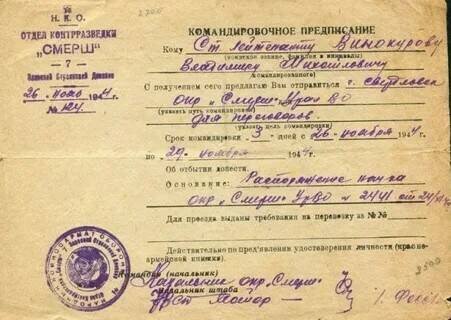 Н. К. О.
ОТДЕЛ КОНТРРАЗВЕДКИ
"СМЕРШ"
7
26 1944 г.
№ 124
КОМАНДИРОВОЧНОЕ ПРЕДПИСАНИЕ
Кому Ст. лейтенанту Винокурову
(воинское звание, фамилия и инициалы)
Владимиру Михайловичу
командированного)
С получением сего предлагаю Вам отправиться г. Свердловск
окр "Смерш" УралВО
(указать путь командировки)
для переговоров.
(указать цель командировки)
Срок командировки 3 дней с 26 ноября 1944 г.
по 29 ноября 1944 г.
Об отбытии довести.
Основание: Распоряжение нач-ка
окр "Смерш" УрВО № 2441 от 24/
Для проезда выданы требования на перевозку за №№
Действительно по предъявлении удостоверения личности (красно-
армейской книжки).
Командир (начальник)
Начальник окр. "Смерш"
Начальник штаба
Майор